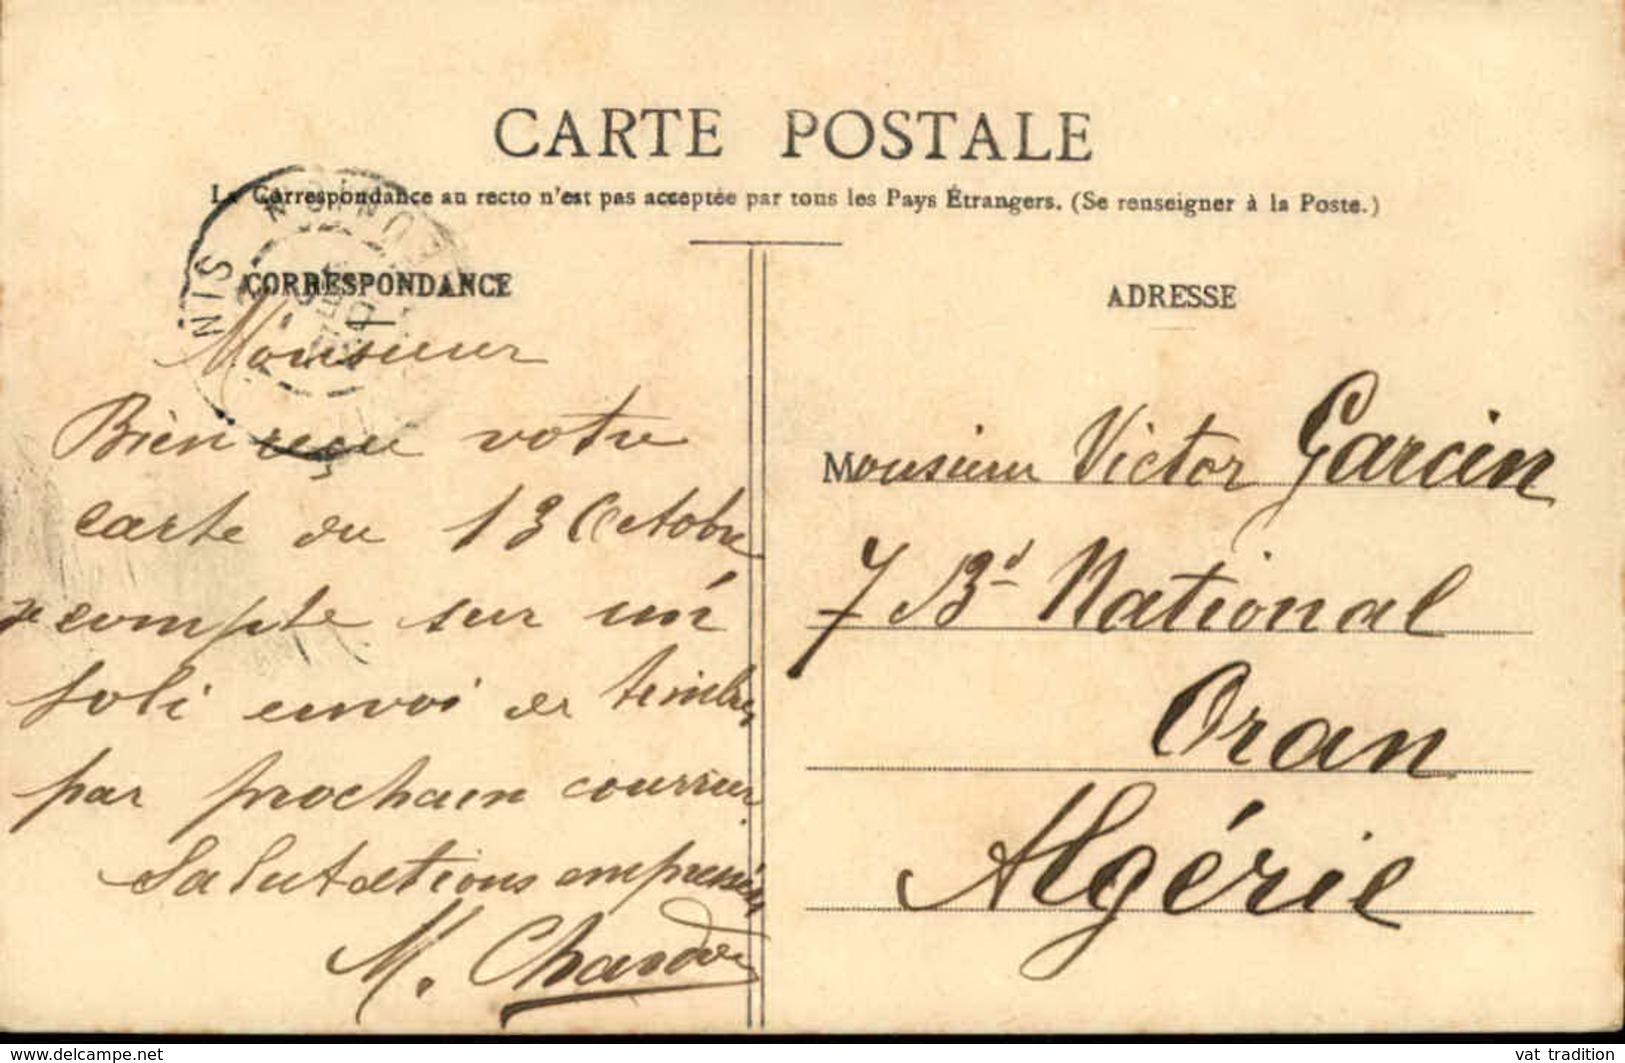 CARTE POSTALE
La Correspondance au recto n'est pas acceptée par tous les Pays Étrangers. (Se renseigner à la Poste.)
CORRESPONDANCE
Monsieur
Bien reçu votre
carte du 13 Octobre
je compte sur un
joli envoi de timbres
par prochain courrier
Salutations empressées
M.
ADRESSE
Monsieur Victor Garcin
7 Bd National
Oran
Algérie
www.delcampe.net
vat_tradition